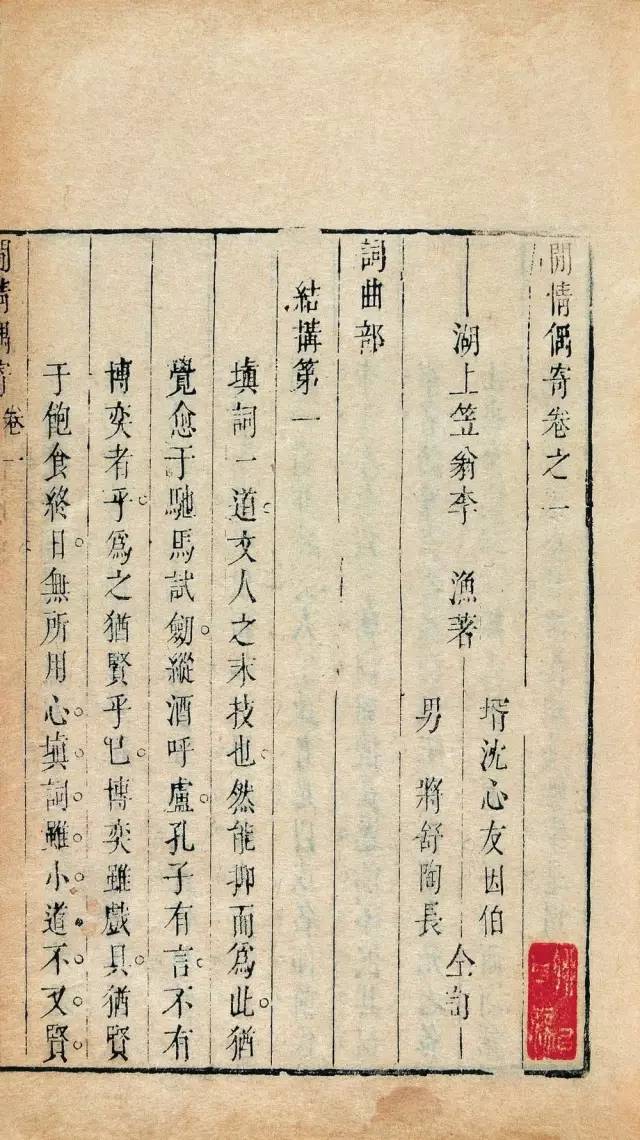 閒情偶寄卷之一
湖上笠翁李　漁著
壻沈心友因伯
男　將舒陶長
仝訂
詞曲部
結搆第一
塡詞一道。文人之末技也。然能抑而爲此。猶
覺愈于馳馬試劒。縱酒呼盧。孔子有言。不有
博奕者乎。爲之猶賢乎已。博奕雖戲具。猶賢
于飽食終日。無所用心。塡詞雖小道。不又賢
閒情偶寄卷一